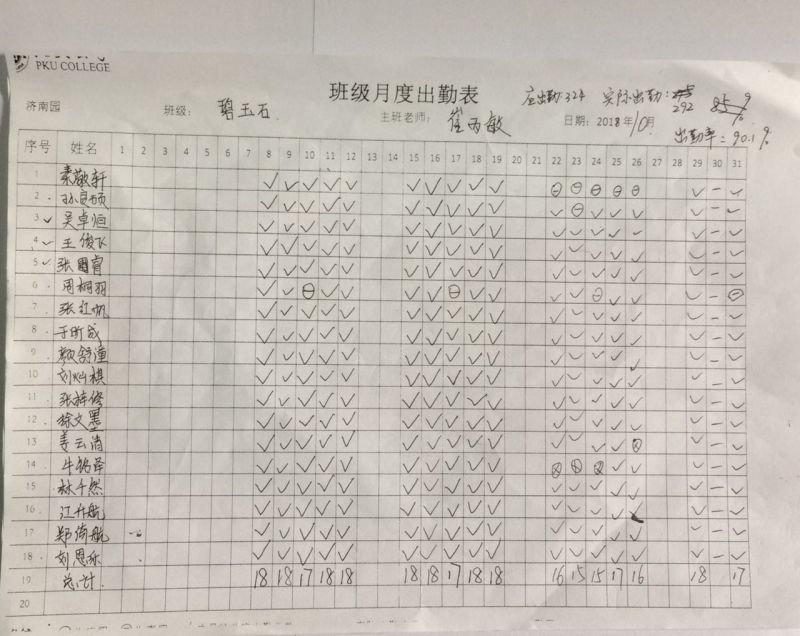 PKU COLLEGE
班级月度出勤表 应出勤:324 实际出勤: 292
济南园 班级: 碧玉石 主班老师: 日期: 2018年10月 出勤率=90.1%
序号 姓名 1 2 3 4 5 6 7 8 9 10 11 12 13 14 15 16 17 18 19 20 21 22 23 24 25 26 27 28 29 30 31
1 ✓ ✓ ✓ ✓ ✓ ✓ ✓ ✓ ✓ ✓ ⊖ ⊖ ⊖ ⊖ ⊖ ✓ – ✓
2 ✓ ✓ ✓ ✓ ✓ ✓ ✓ ✓ ✓ ✓ ✓ ⊖ ✓ ✓ ✓ ✓ – ✓
3 ✓ 吴卓恒 ✓ ✓ ✓ ✓ ✓ ✓ ✓ ✓ ✓ ✓ ✓ ✓ ✓ ✓ ✓ ✓ – ✓
4 ✓ 王俊飞 ✓ ✓ ✓ ✓ ✓ ✓ ✓ ✓ ✓ ✓ ✓ ✓ ✓ ✓ ✓ ✓ – ✓
5 ✓ ✓ ✓ ✓ ✓ ✓ ✓ ✓ ✓ ✓ ✓ ✓ ✓ ✓ ✓ ✓ ✓ – ✓
6 周桐羽 ✓ ✓ ⊖ ✓ ✓ ✓ ✓ ⊖ ✓ ✓ ✓ ✓ ⊖ ✓ ✓ ✓ – ⊖
7 张红帆 ✓ ✓ ✓ ✓ ✓ ✓ ✓ ✓ ✓ ✓ ✓ ✓ ✓ ✓ ✓ ✓ – ✓
8 于昕成 ✓ ✓ ✓ ✓ ✓ ✓ ✓ ✓ ✓ ✓ ✓ ✓ ✓ ✓ ✓ ✓ – ✓
9 颜舒潼 ✓ ✓ ✓ ✓ ✓ ✓ ✓ ✓ ✓ ✓ ✓ ✓ ✓ ✓ ✓ ✓ – ✓
10 刘灿祺 ✓ ✓ ✓ ✓ ✓ ✓ ✓ ✓ ✓ ✓ ✓ ✓ ✓ ✓ ✓ ✓ – ✓
11 张梓修 ✓ ✓ ✓ ✓ ✓ ✓ ✓ ✓ ✓ ✓ ✓ ✓ ✓ ✓ ✓ ✓ – ✓
12 徐文墨 ✓ ✓ ✓ ✓ ✓ ✓ ✓ ✓ ✓ ✓ ✓ ✓ ✓ ✓ ✓ ✓ – ✓
13 姜云清 ✓ ✓ ✓ ✓ ✓ ✓ ✓ ✓ ✓ ✓ ✓ ✓ ✓ ✓ ⊗ ✓ – ✓
14 牛铭泽 ✓ ✓ ✓ ✓ ✓ ✓ ✓ ✓ ✓ ✓ ⊗ ⊗ ⊗ ✓ ✓ ✓ – ✓
15 林千然 ✓ ✓ ✓ ✓ ✓ ✓ ✓ ✓ ✓ ✓ ✓ ✓ ✓ ✓ ✓ ✓ – ✓
16 江升航 ✓ ✓ ✓ ✓ ✓ ✓ ✓ ✓ ✓ ✓ ✓ ✓ ✓ ✓ ✓ ✓ – ✓
17 郑倚航 ✓ ✓ ✓ ✓ ✓ ✓ ✓ ✓ ✓ ✓ ✓ ✓ ✓ ✓ ✓ ✓ – ✓
18 刘恩乐 ✓ ✓ ✓ ✓ ✓ ✓ ✓ ✓ ✓ ✓ ✓ ✓ ✓ ✓ ✓ ✓ – ✓
19 总计 18 18 17 18 18 18 18 17 18 18 16 15 15 17 16 18 17
20